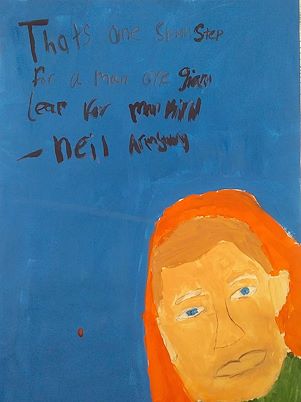 Thats one small step
for a man one giant
leap for mankind
- Neil Armstrong